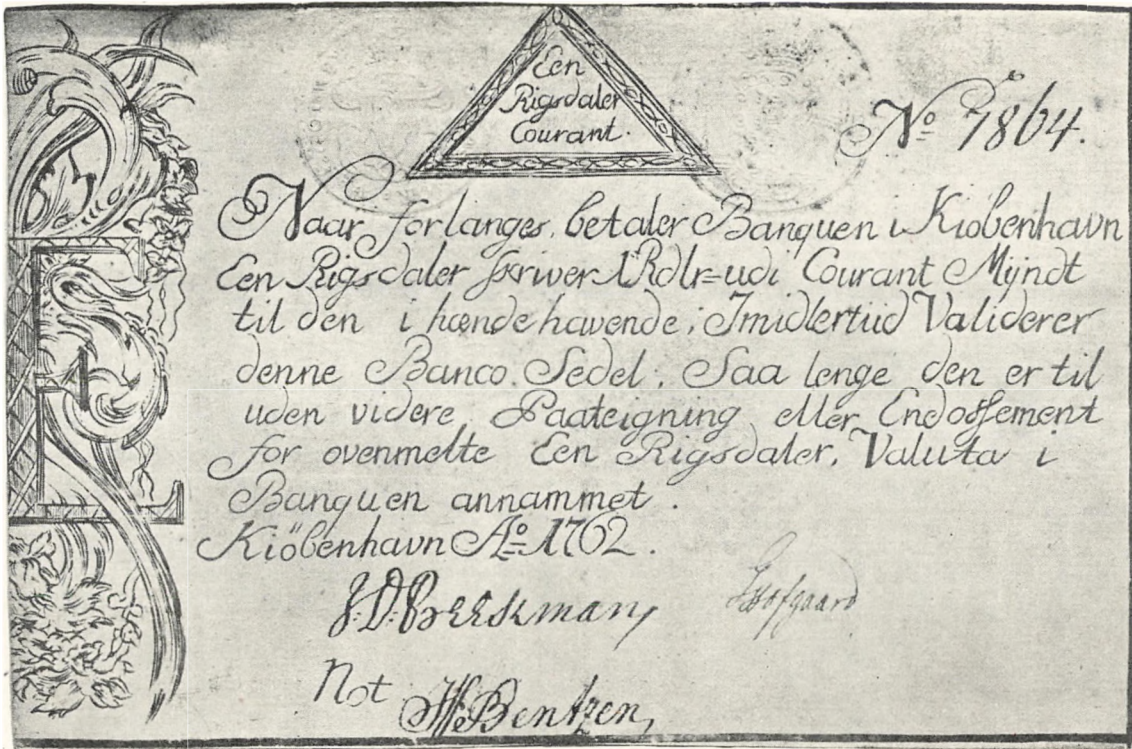 Een
Rigsdaler
Courant.
No 7864.
Naar forlanges, betaler Banquen i Kiöbenhavn
Een Rigsdaler skriver 1 Rdlr= udi Courant Myndt
til den i hænde havende, Imidlertid Validerer
denne Banco Sedel, Saa lenge den er til
uden videre Paateigning eller Endossement
for ovenmelte Een Rigsdaler, Valuta i
Banquen annammet.
Kiöbenhavn Ao 1762.
J.D. Beekman,
Hofgaard
Not
Bentzen,